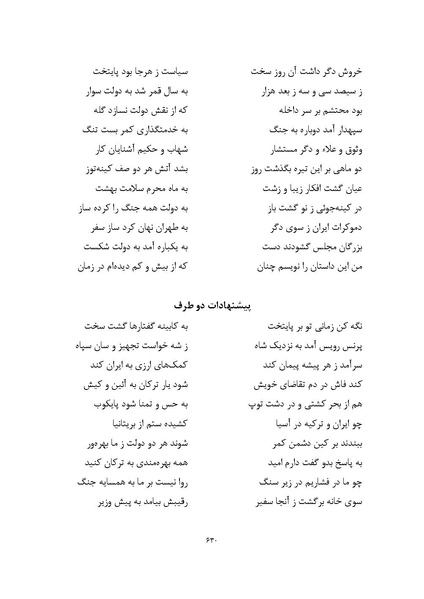 خروش دگر داشت آن روز سخت سیاست ز هرجا بود پایتخت
ز سیصد سی و سه ز بعد هزار به سال قمر شد به دولت سوار
بود محتشم بر سر داخله که از نقش دولت نسازد گله
سپهدار آمد دوباره به جنگ به خدمتگذاری کمر بست تنگ
وثوق و علاء و دگر مستشار شهاب و حکیم آشنایان کار
دو ماهی بر این تیره بگذشت روز بشد آتش هر دو صف کینه‌توز
عیان گشت افکار زیبا و زشت به ماه محرم سلامت بهشت
در کینه‌جوئی ز نو گشت باز به دولت همه جنگ را کرده ساز
دموکرات ایران ز سوی دگر به طهران نهان کرد ساز سفر
بزرگان مجلس گشودند دست به یکباره آمد به دولت شکست
من این داستان را نویسم چنان که از بیش و کم دیده‌ام در زمان
پیشنهادات دو طرف
نگه کن زمانی تو بر پایتخت به کابینه گفتارها گشت سخت
پرنس رویس آمد به نزدیک شاه ز شه خواست تجهیز و سان سپاه
سرآمد ز هر پیشه پیمان کند کمک‌های ارزی به ایران کند
کند فاش در دم تقاضای خویش شود یار ترکان به آئین و کیش
هم از بحر کشتی و در دشت توپ به حس و تمنا شود پایکوب
چو ایران و ترکیه در آسیا کشیده ستم از بریتانیا
ببندند بر کین دشمن کمر شوند هر دو دولت ز ما بهره‌ور
به پاسخ بدو گفت دارم امید همه بهره‌مندی به ترکان کنید
چو ما در فشاریم در زیر سنگ روا نیست بر ما به همسایه جنگ
سوی خانه برگشت ز آنجا سفیر رقیبش بیامد به پیش وزیر
۶۳۰